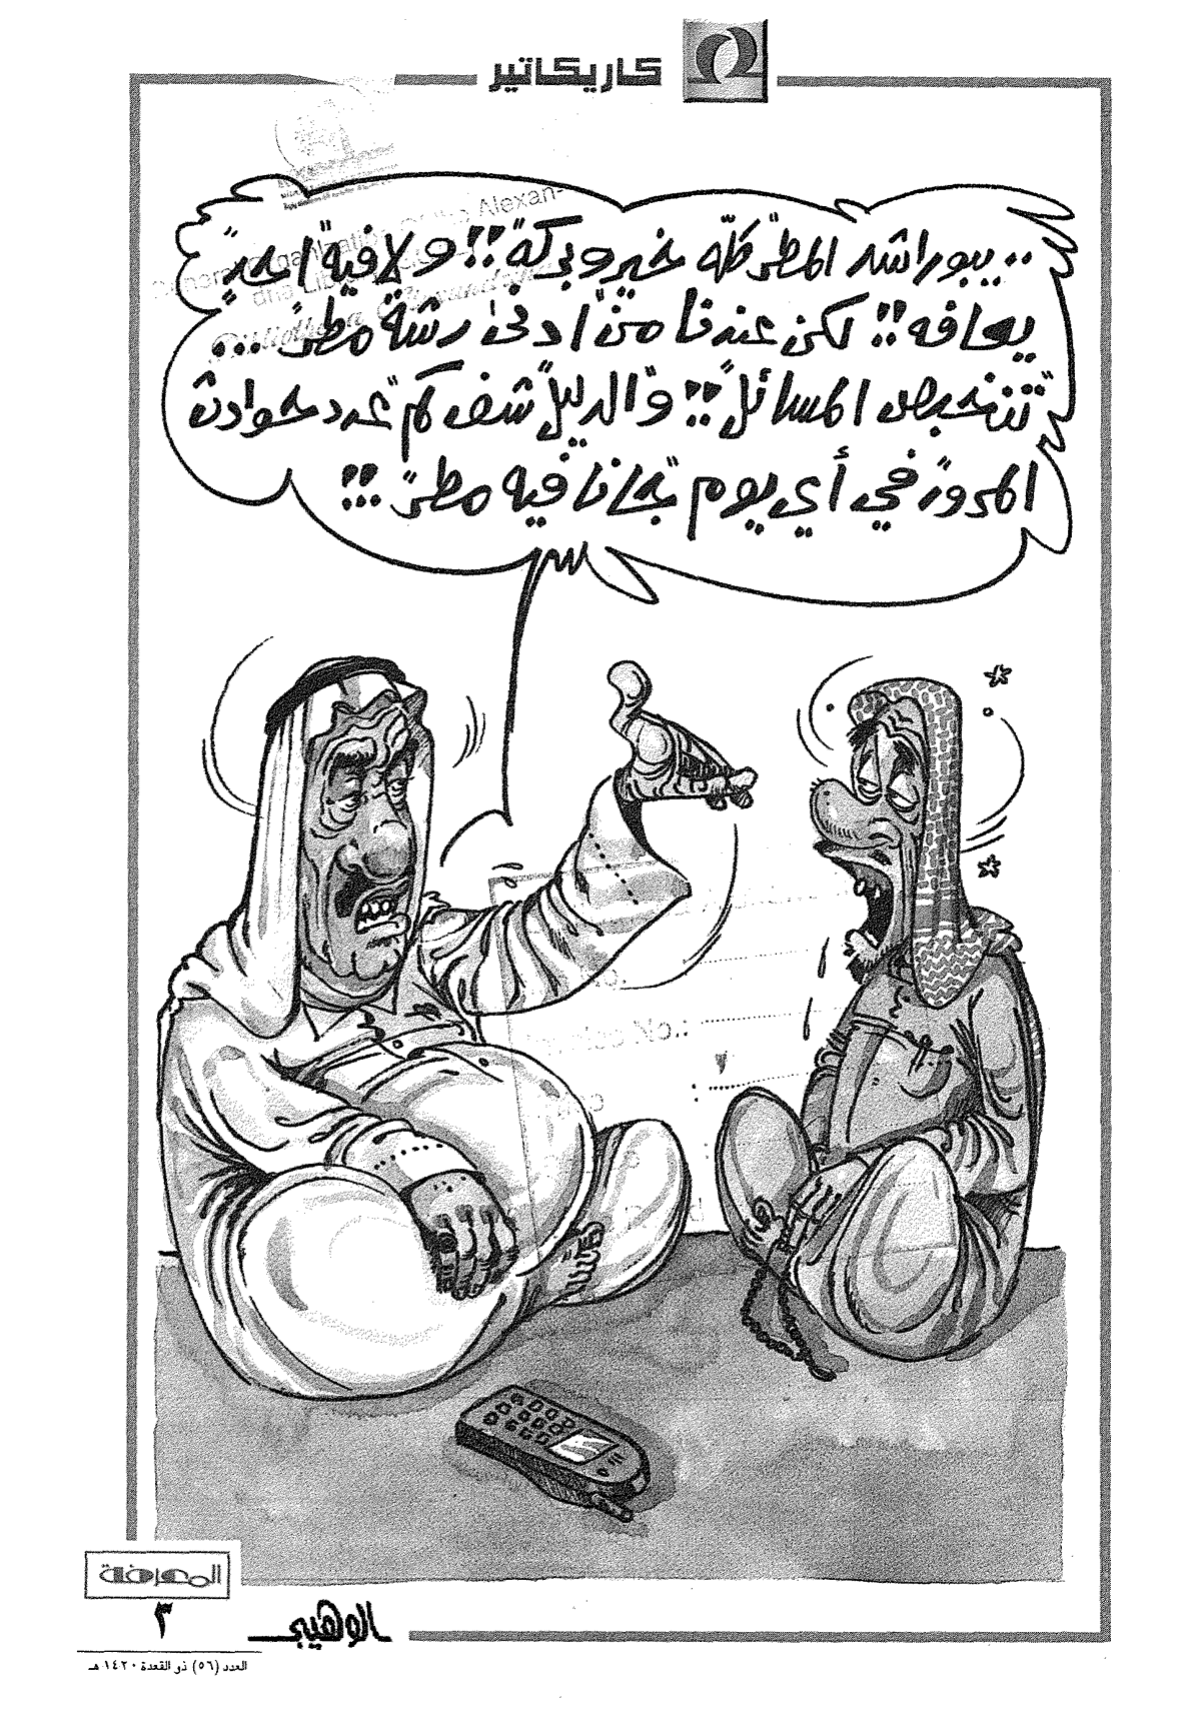 كاريكاتير
.. يبوراشد المطر كلّه خير وبركة!! ولا فيه احدٍ
يعافه!! لكن عندنا من ادنى رشة مطر...
تتخبص المسائل!! والدليل شف كم عدد حوادث
المرور في أي يوم يجانا فيه مطر...!!
المعرفة
٣
الوهيبي
العدد (٥٦) ذو القعدة ١٤٢٠هـ